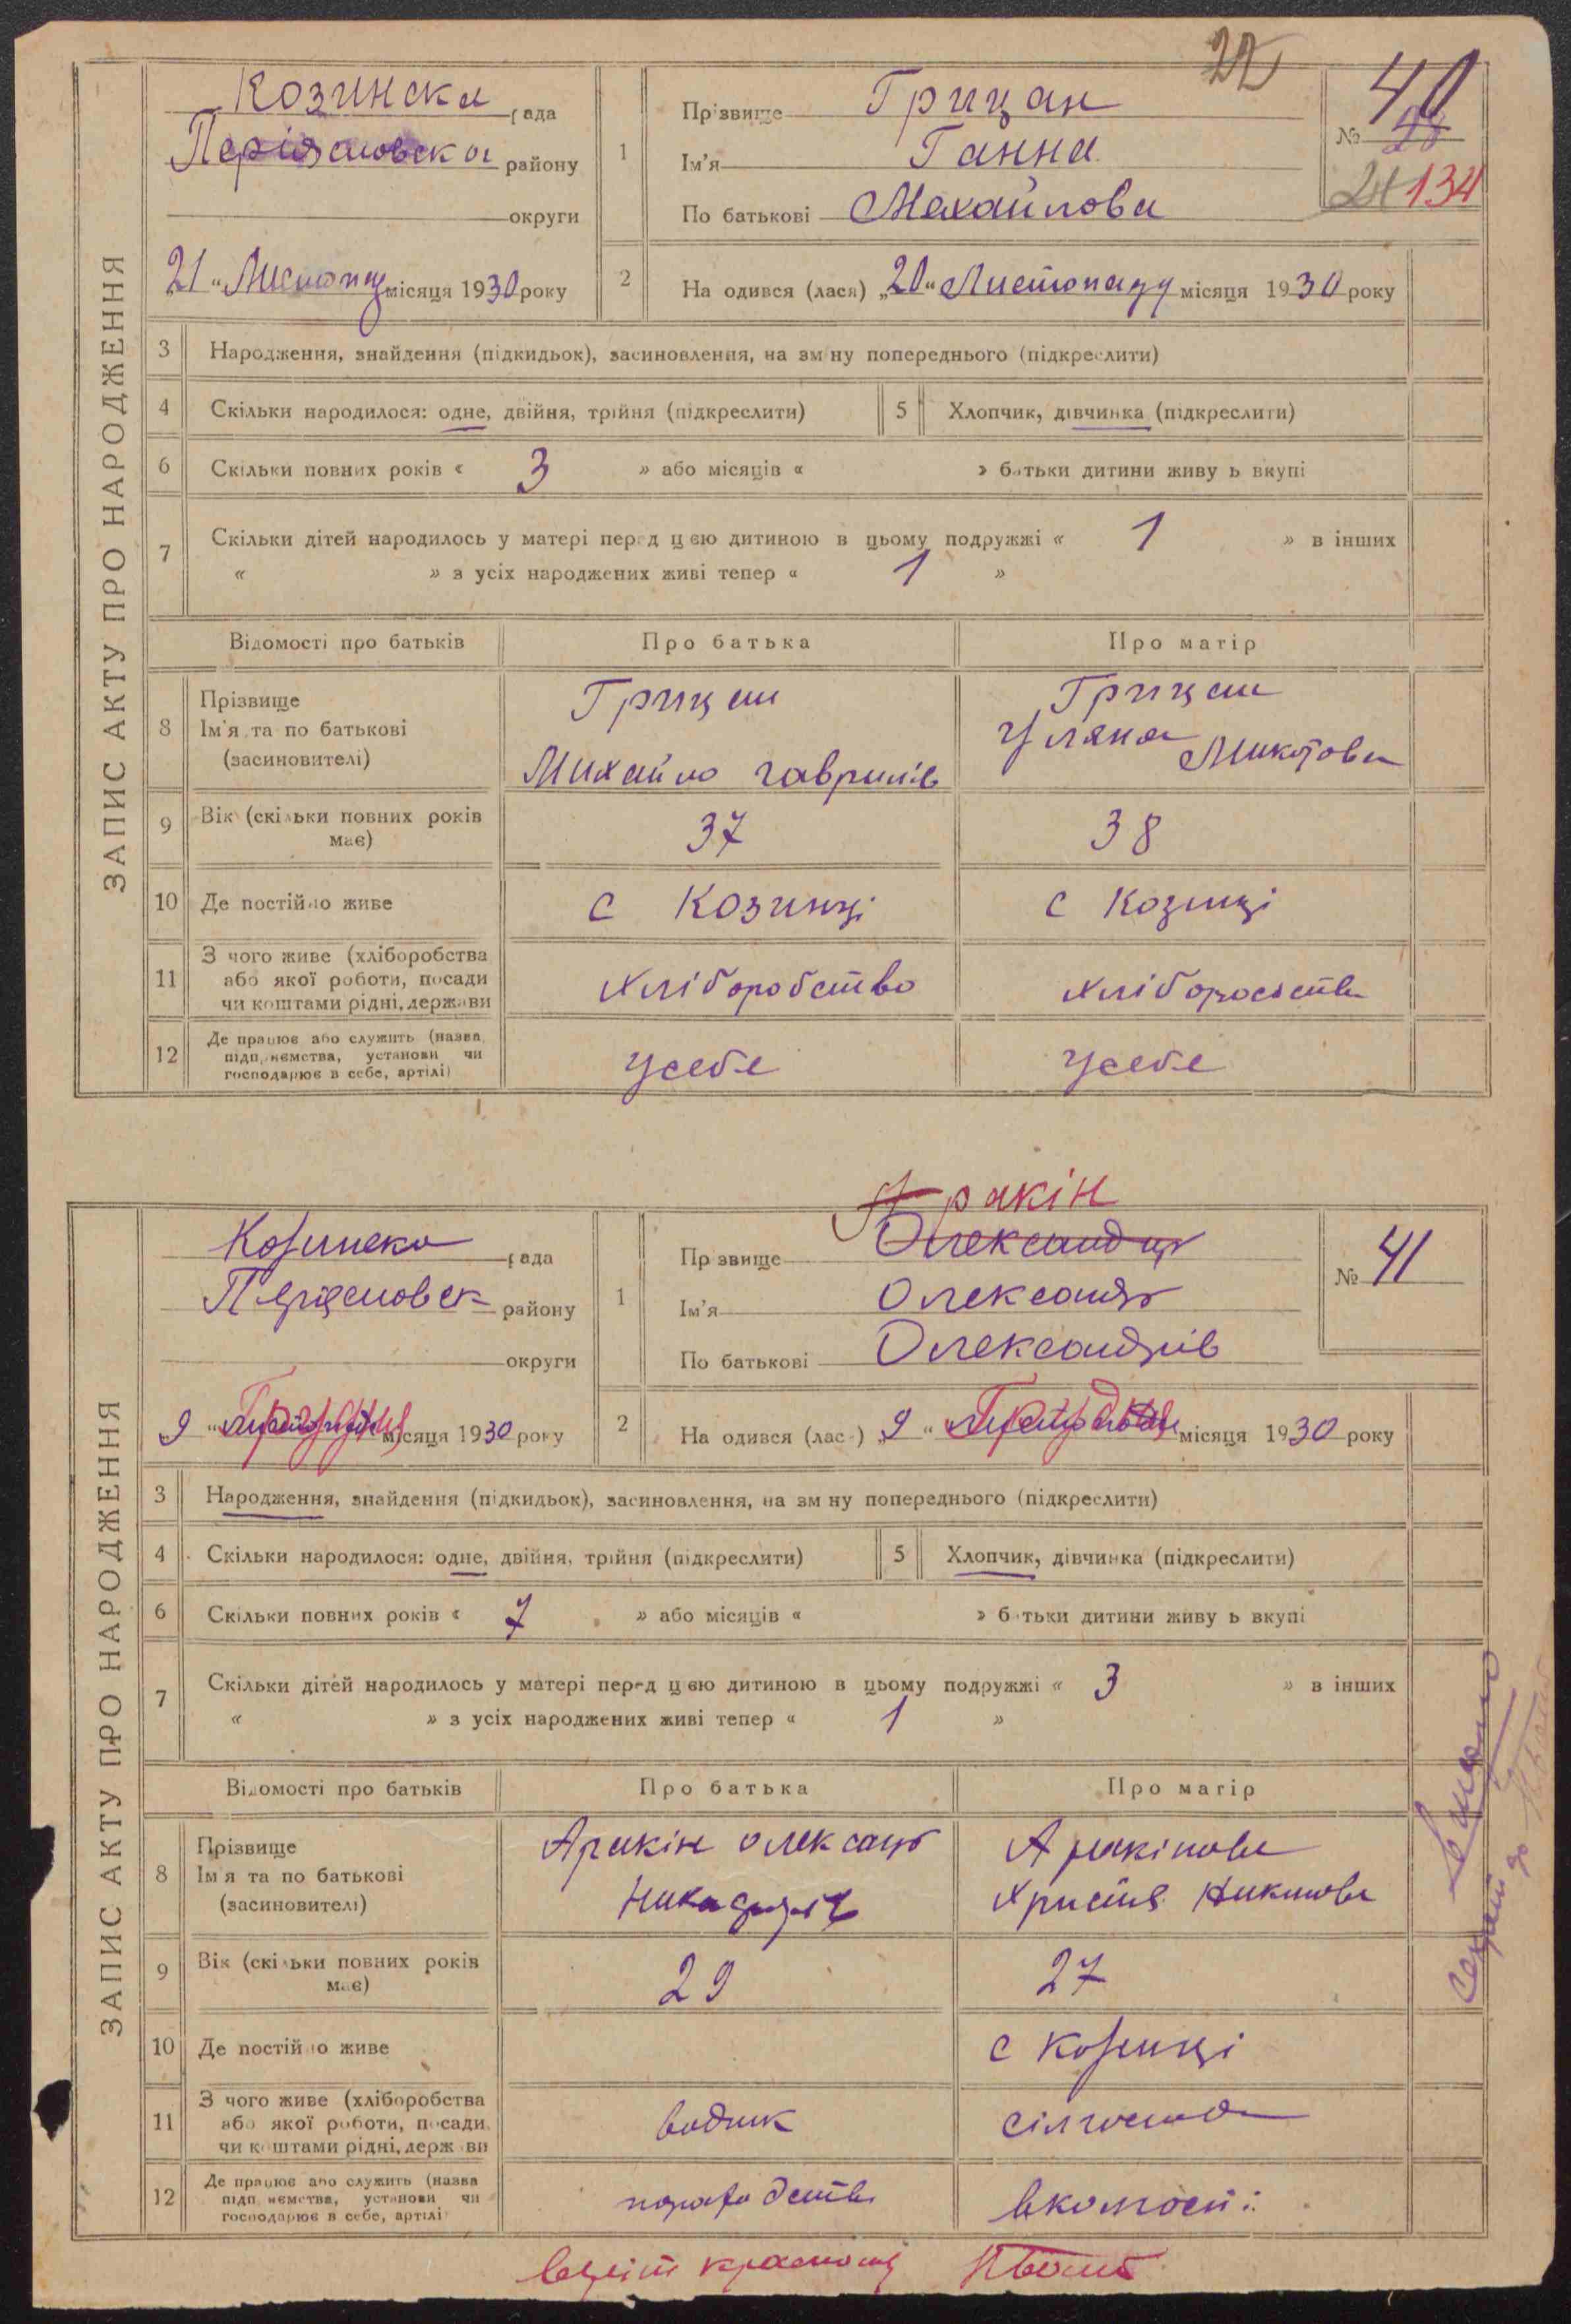 22
ЗАПИС АКТУ ПРО НАРОДЖЕННЯ
Козинска рада
Переяславска району
округи
„21“ Листопад місяця 1930 року
1
Прізвище Грицан
Ім'я Ганна
По батькові Михайлова
№ 40
28
24 134
2 На одився (лася) „20“ Листопаду місяця 1930 року
3 Народження, знайдення (підкидьок), засиновлення, на зміну попереднього (підкреслити)
4 Скільки народилося: одне, двійня, трійня (підкреслити)
5 Хлопчик, дівчинка (підкреслити)
6 Скільки повних років « 3 » або місяців « » батьки дитини живуть вкупі
7 Скільки дітей народилось у матері перед цією дитиною в цьому подружжі « 1 » в інших
« » з усіх народжених живі тепер « 1 »
Відомості про батьків Про батька Про матір
8 Прізвище
Ім'я та по батькові
(засиновителі)
Грицан
Михайло Гаврилів
Грицан
Уляна Микитова
9 Вік (скільки повних років
має)
37 38
10 Де постійно живе с Козинці с Козинці
11 З чого живе (хліборобства
або якої роботи, посади
чи коштами рідні, держави
хліборобство хліборобство
12 Де працює або служить (назва
підприємства, установи чи
господарює в себе, артілі)
у себе у себе
ЗАПИС АКТУ ПРО НАРОДЖЕННЯ
Козинска рада
Переяславск району
округи
„9“ Грудня місяця 1930 року
1
Аракін
Прізвище Олександр
Ім'я Олександр
По батькові Олександрів
№ 41
2 На одився (лас ) „9“ Грудня місяця 1930 року
3 Народження, знайдення (підкидьок), засиновлення, на зміну попереднього (підкреслити)
4 Скільки народилося: одне, двійня, трійня (підкреслити)
5 Хлопчик, дівчинка (підкреслити)
6 Скільки повних років « 7 » або місяців « » батьки дитини живуть вкупі
7 Скільки дітей народилось у матері перед цією дитиною в цьому подружжі « 3 » в інших
« » з усіх народжених живі тепер « 1 »
Відомості про батьків Про батька Про матір
8 Прізвище
Ім'я та по батькові
(засиновителі)
Аракін Олександр
Аракінова
Христя
9 Вік (скільки повних років
має)
29 27
10 Де постійно живе с Козинці
11 З чого живе (хліборобства
або якої роботи, посади
чи коштами рідні, держави
водник
12 Де працює або служить (назва
підприємства, установи чи
господарює в себе, артілі